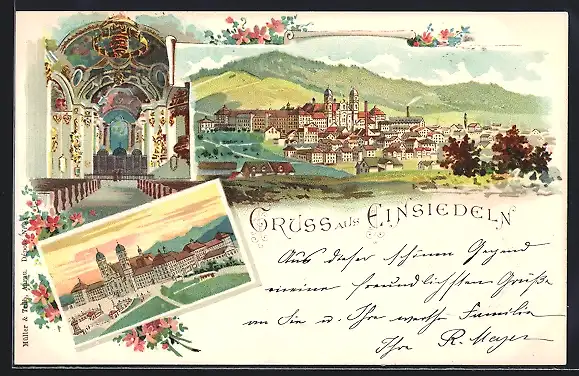 GRUSS AUS EINSIEDELN
Aus dieser schönen Gegend
meine freundlichsten Grüße
an Sie u. Ihre werthe Familie
Ihre R. Mayer
Müller &
Aarau.